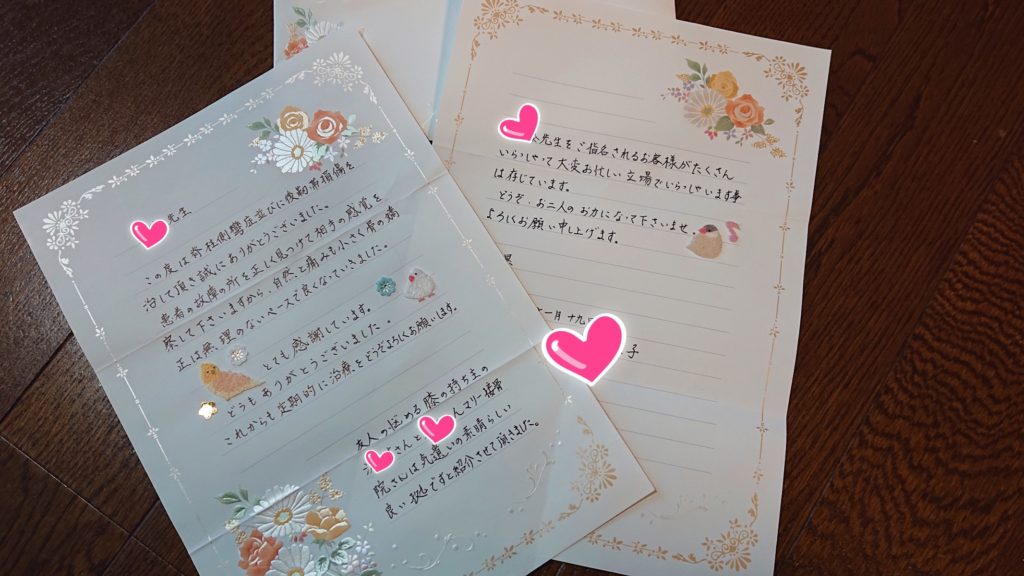 先生
この度は脊柱側彎症並びに後靭帯損傷を
治して頂き誠にありがとうございました。
患者の故障の所を正しく見つけて相手の感覚を
察して下さいますから、自然と痛みも小さく骨の矯
正は無理のないペースで良くなっていきました。
とても感謝しています。
どうもありがとうございました。
これからも定期的に治療をどうぞよろしくお願います。
友人の悩める膝の持ち主の
さんと んマリー接骨
院さんは気遣いの素晴らしい
良い処ですと紹介させて頂きました。
先生をご指名されるお客様がたくさん
いらっしゃって大変お忙しい立場でいらっしゃいます事
は存じています。
どうぞ、お二人のお力になって下さいませ。
よろしくお願い申し上げます。
一月十九
子